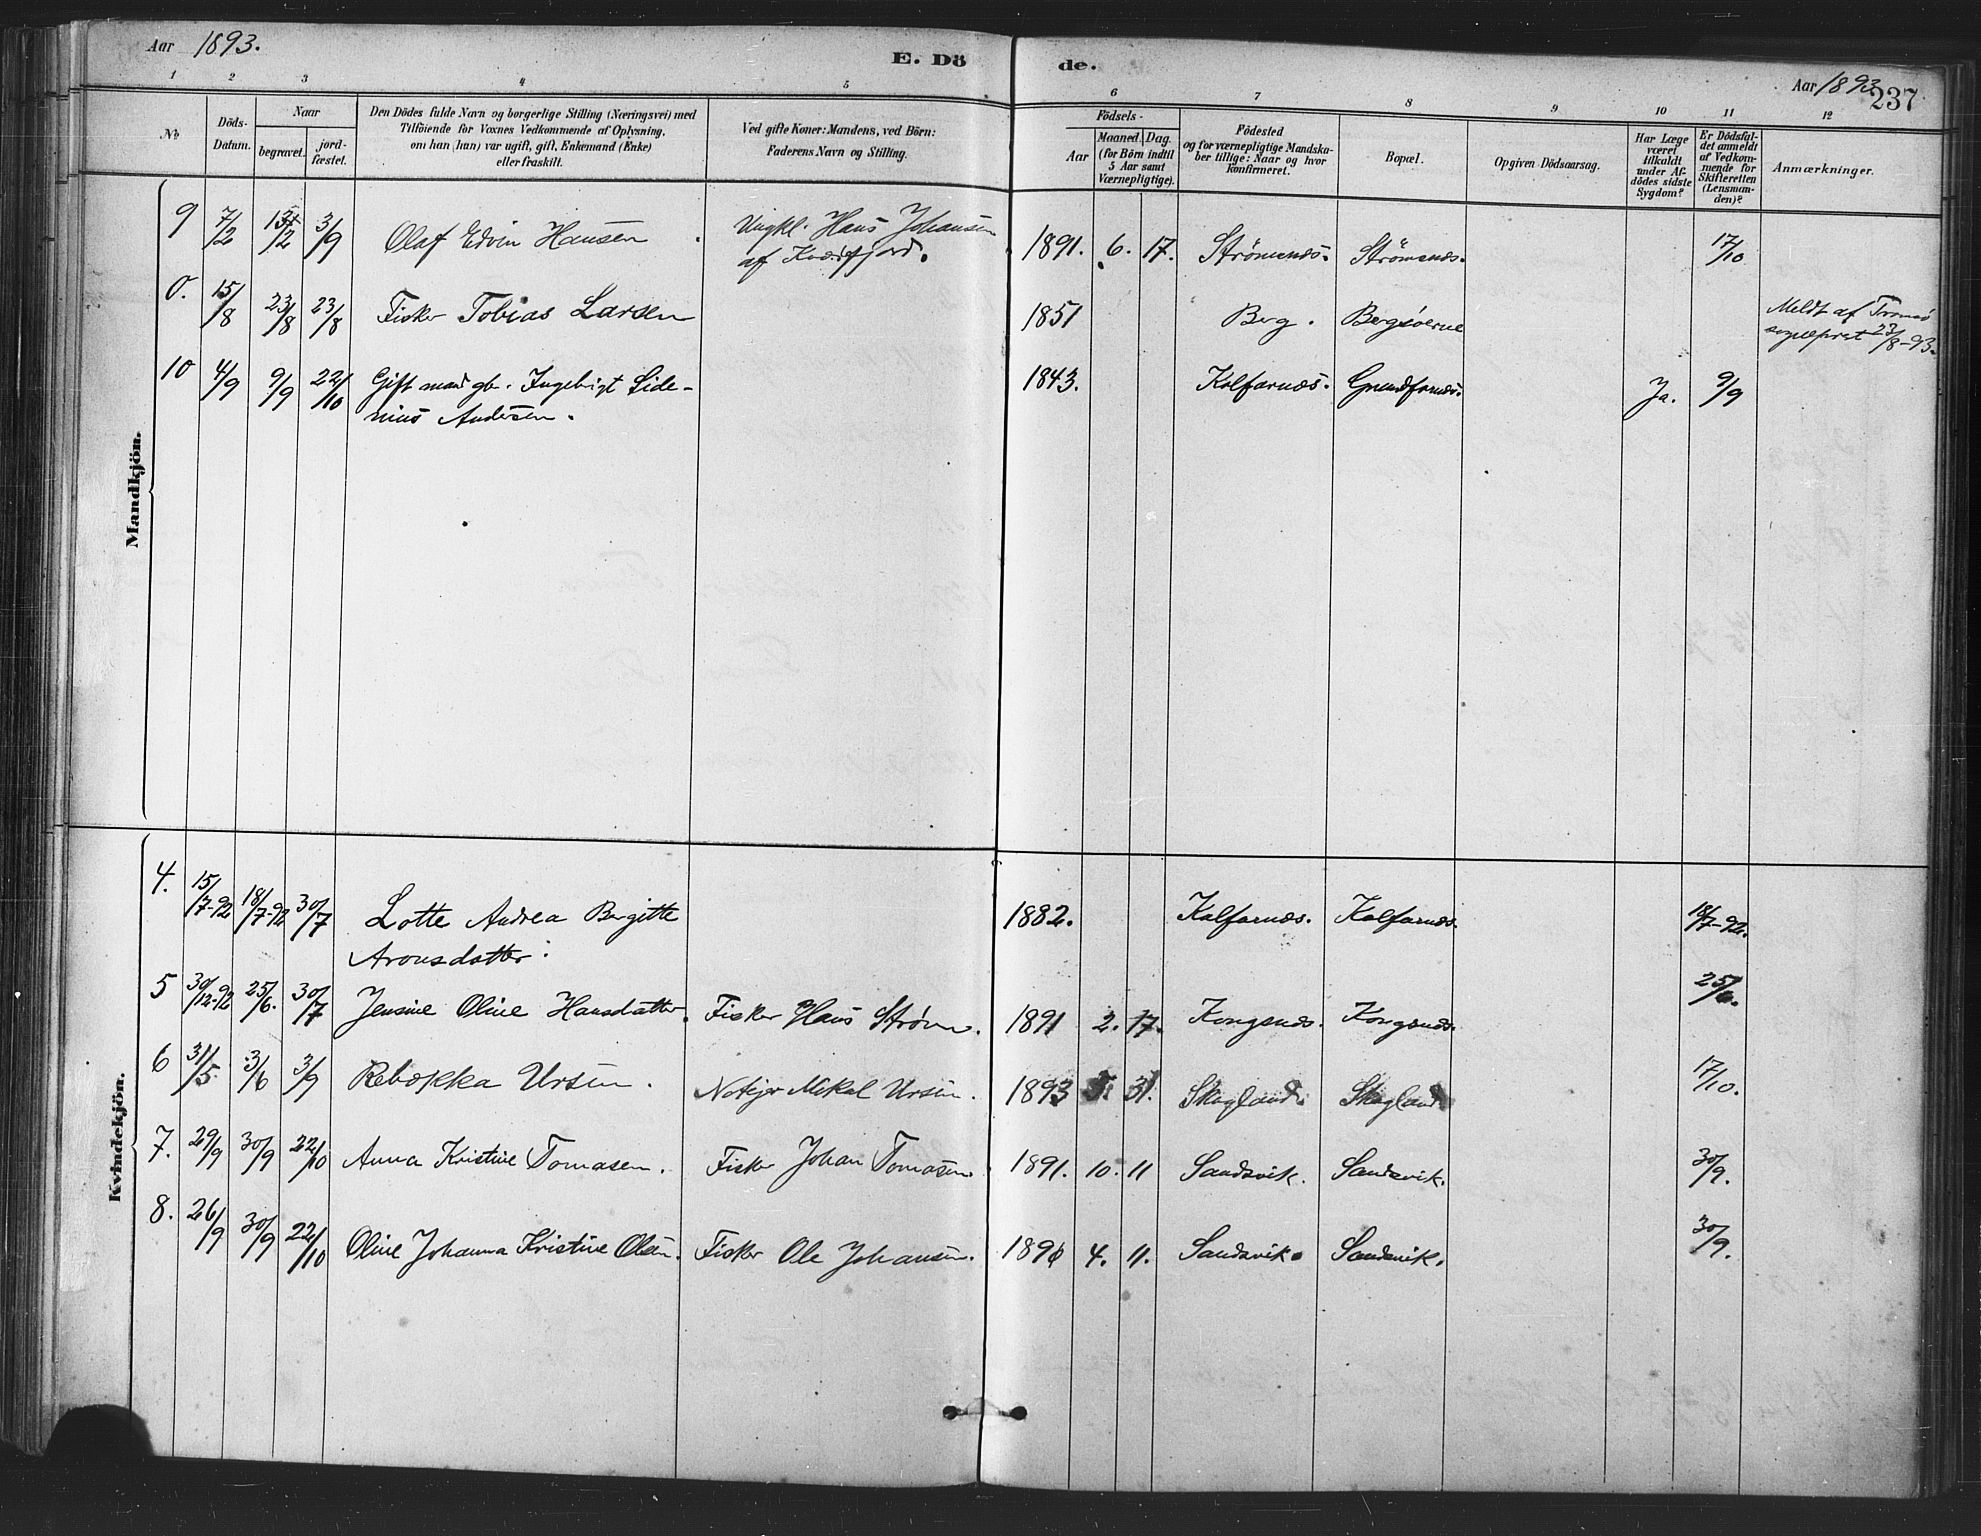 Aar 1893.
E. Dö
de.
Aar 1893
237
1 2 3 4 5 6 7 8 9 10 11 12
No
Döds-
Datum.
Naar
begravet.
jord-
fæstet.
Den Dödes fulde Navn og borgerlige Stilling (Næringsvei) med
Tilföiende for Voxnes Vedkommende af Oplysning,
om han (hun) var ugift, gift, Enkemand (Enke)
eller fraskilt.
Ved gifte Koner: Mandens, ved Börn:
Faderens Navn og Stilling.
Födsels-
Aar
Maaned. Dag.
(for Börn indtil
5 Aar samt
Værnepligtige).
Födested
og for værnepligtige Mandska-
ber tillige: Naar og hvor
konfirmeret.
Bopæl.
Opgiven Dödsaarsag.
Har Læge
været
tilkaldt
under Af-
dödes sidste
Sygdom?
Er Dödsfal-
det anmeldt
af Vedkom-
mende for
Skifteretten
(Lensman-
den)?
Anmærkninger.
Mandkjön.
9 7/2 13/2 3/9 Olaf Edvin Hansen Ungkl. Hans Johansen 1891. 6. 17. Strömsnæs. Strömsnæs. 17/10
af Kvæfjord.
0. 15/8 23/8 23/8 Fisker Tobias Larsen 1851 Berg. Bergsöerne Meldt af Tromsö
sogneprest 23/8-93.
10 4/9 9/9 22/10 Gift mand gbr. Ingebrigt Side- 1843. Kalfarnæs. Grundfarnæs. Ja. 9/9
nius Andersen.
Kvindekjön.
4. 15/7-92 18/7-92 30/7 Lotte Andrea Bergitte 1882. Kalfarnæs. Kalfarnæs. 18/7-92.
Aronsdatter.
5 30/12-92 25/6. 30/7 Jensine Oline Hansdatter. Fisker Hans Ström. 1891 2. 17. Kongsnæs. Kongsnæs. 25/6.
6 31/5 3/6 3/9 Rebekka Ursin. Notejer Mikal Ursin. 1893 5. 31. Skagland. Skagland 17/10.
7. 29/9 30/9 22/10 Anna Kristine Tomasen. Fisker Johan Tomasen. 1891. 10. 11 Sandsvik. Sandsvik. 30/9.
8. 26/9 30/9 22/10 Oline Johanna Kristine Olsen. Fisker Ole Johansen. 1890 4. 11. Sandsvik. Sandsvik. 30/9.